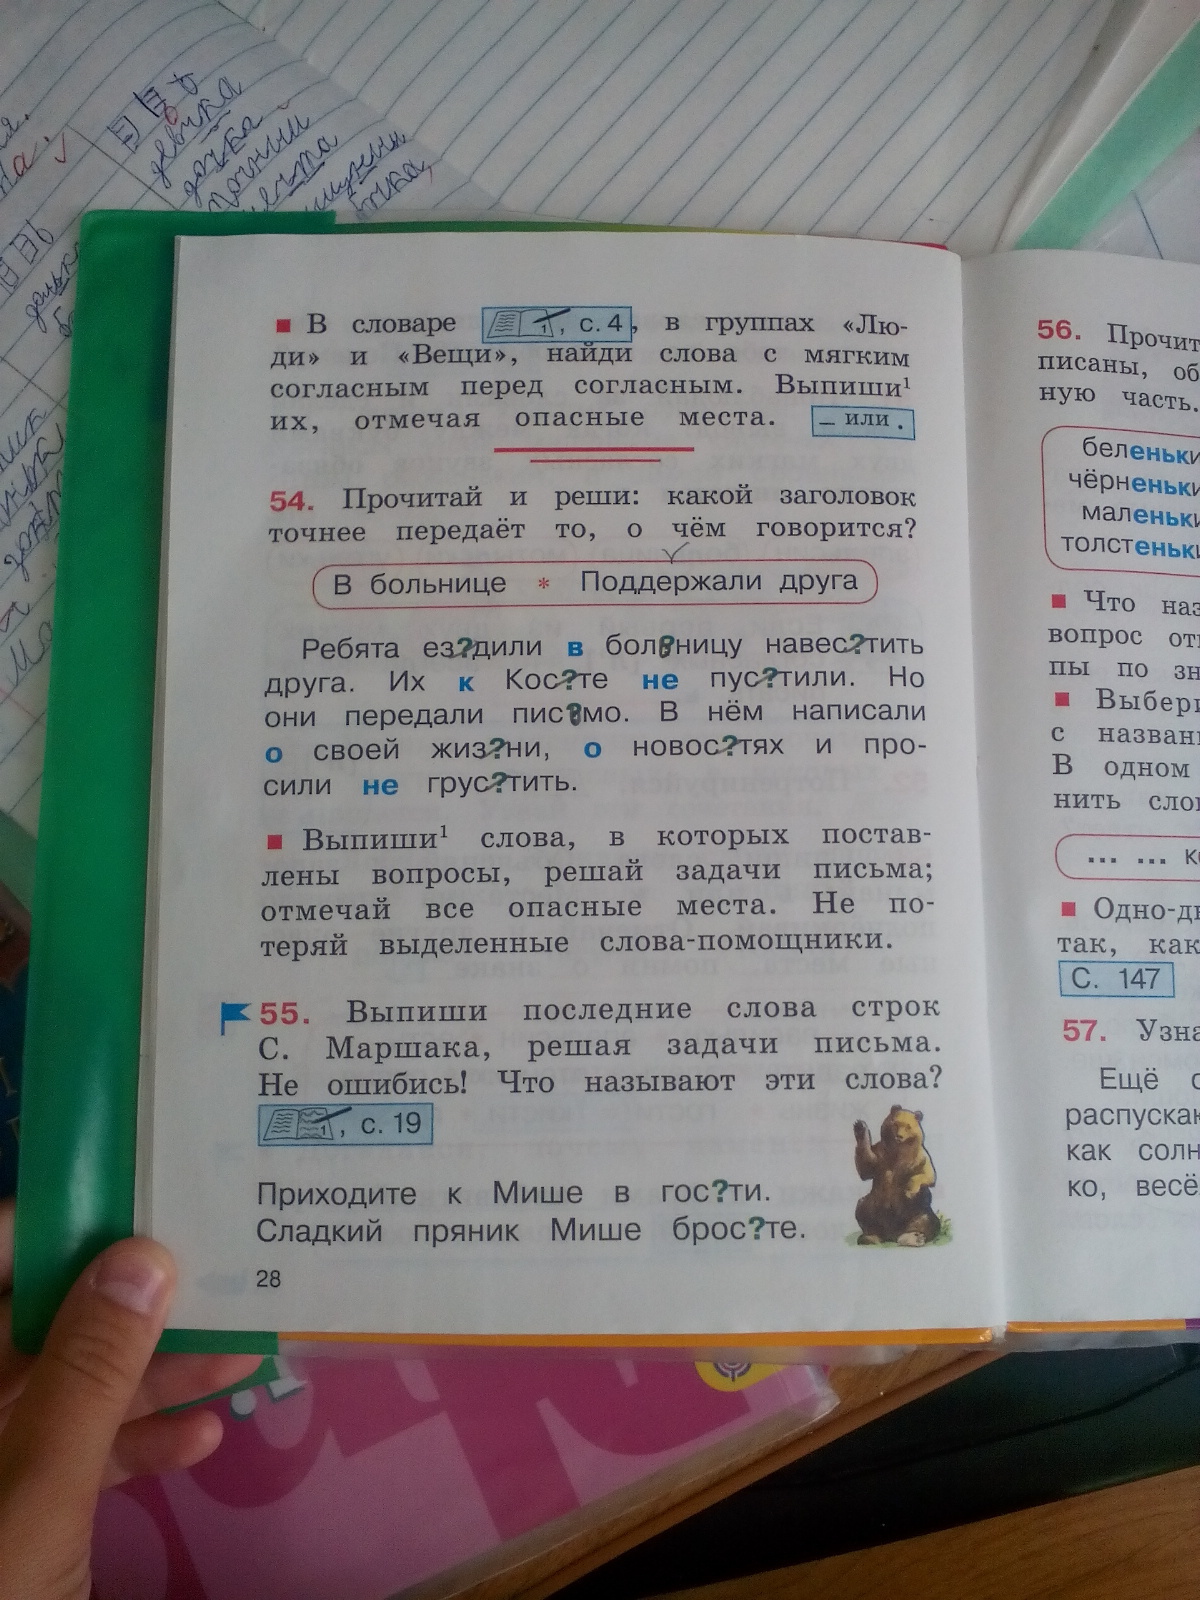 девочка
дочка
■ В словаре 1, с. 4, в группах «Лю-
ди» и «Вещи», найди слова с мягким
согласным перед согласным. Выпиши¹
их, отмечая опасные места. – или .
54. Прочитай и реши: какой заголовок
точнее передаёт то, о чём говорится?
В больнице * Поддержали друга
Ребята ез?дили в больницу навес?тить
друга. Их к Кос?те не пус?тили. Но
они передали письмо. В нём написали
о своей жиз?ни, о новос?тях и про-
сили не грус?тить.
■ Выпиши¹ слова, в которых постав-
лены вопросы, решай задачи письма;
отмечай все опасные места. Не по-
теряй выделенные слова-помощники.
55. Выпиши последние слова строк
С. Маршака, решая задачи письма.
Не ошибись! Что называют эти слова?
1, с. 19
Приходите к Мише в гос?ти.
Сладкий пряник Мише брос?те.
28
56. Прочит
писаны, об
ную часть.
беленьки
чёрненьки
маленьки
толстеньки
■ Что наз
вопрос от
пы по зн
■ Выбери
с назван
В одном
нить слов
... ... к
■ Одно-дв
так, как
С. 147
57. Узна
Ещё с
распуска
как солн
ко, весё